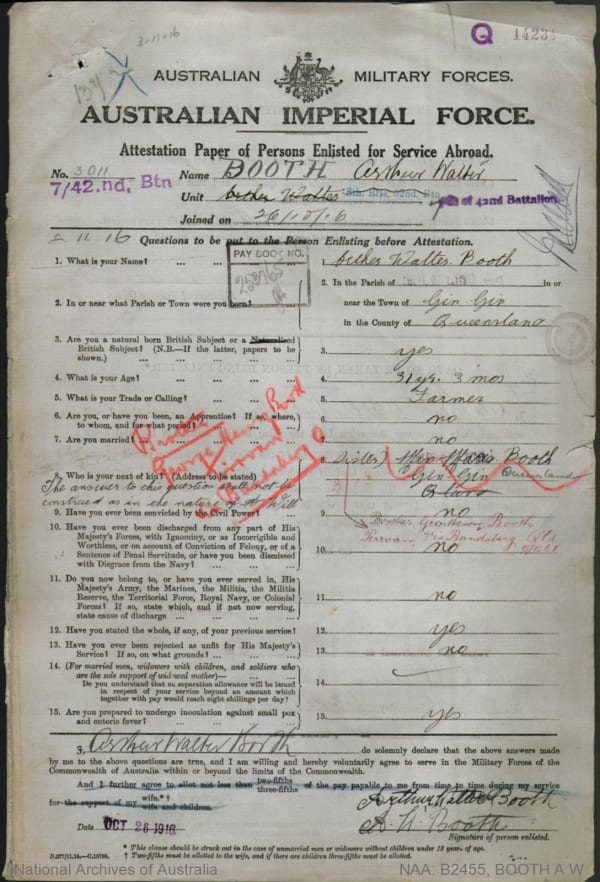 3-11-16
Q 14234
134
AUSTRALIAN MILITARY FORCES.
AUSTRALIAN IMPERIAL FORCE.
Attestation Paper of Persons Enlisted for Service Abroad.
No. 3011 Name BOOTH Arthur Walter
7/42.nd. Btn
Unit of 42nd Battalion
Joined on 26/10/16
2.11.16 Questions to be put to the Person Enlisting before Attestation.
PAY BOOK NO.
1. What is your Name? ... ... 1. Arther Walter Booth
2. In or near what Parish or Town were you born? 2. In the Parish of in or
near the Town of Gin Gin
in the County of Queensland
3. Are you a natural born British Subject or a Naturalised
British Subject? (N.B.—If the latter, papers to be
shown.) ... ... 3. yes
4. What is your Age? ... ... 4. 31 yrs. 3 mos
5. What is your Trade or Calling? ... ... 5. Farmer
6. Are you, or have you been, an Apprentice? If so, where,
to whom, and for what period? 6. no
7. Are you married? ... ... 7. no
Brother
George Henry Booth
via Bundaberg Q
8. Who is your next of kin? (Address to be stated) 8. Sister) Booth
Gin Gin Queensland
The answer to this question shall not be
construed as in the nature of a Will
9. Have you ever been convicted by the Civil Power? 9. no
Brother Geo Henry Booth
Via Bundaberg Qld
10. Have you ever been discharged from any part of His
Majesty's Forces, with Ignominy, or as Incorrigible and
Worthless, or on account of Conviction of Felony, or of a
Sentence of Penal Servitude, or have you been dismissed
with Disgrace from the Navy? 10. no
11. Do you now belong to, or have you ever served in, His
Majesty's Army, the Marines, the Militia, the Militia
Reserve, the Territorial Force, Royal Navy, or Colonial
Forces? If so, state which, and if not now serving,
state cause of discharge ... 11. no
12. Have you stated the whole, if any, of your previous service? 12. yes
13. Have you ever been rejected as unfit for His Majesty's
Service? If so, on what grounds? ... 13. no
14. (For married men, widowers with children, and soldiers who
are the sole support of widowed mother)—
Do you understand that no separation allowance will be issued
in respect of your service beyond an amount which
together with pay would reach eight shillings per day? 14.
15. Are you prepared to undergo inoculation against small pox
and enteric fever? 15. yes
I, Arthur Walter Booth do solemnly declare that the above answers made
by me to the above questions are true, and I am willing and hereby voluntarily agree to serve in the Military Forces of the
Commonwealth of Australia within or beyond the limits of the Commonwealth.
And I further agree to allot not less than two-fifths three-fifths of the pay payable to me from time to time during my service
for the support of my wife.*† wife and children.
Arthur Walter Booth
Date OCT 26 1916 A. W. Booth
Signature of person enlisted.
* This clause should be struck out in the case of unmarried men or widowers without children under 18 years of age.
† Two-fifths must be allotted to the wife, and if there are children three-fifths must be allotted.
National Archives of Australia NAA: B2455, BOOTH A W